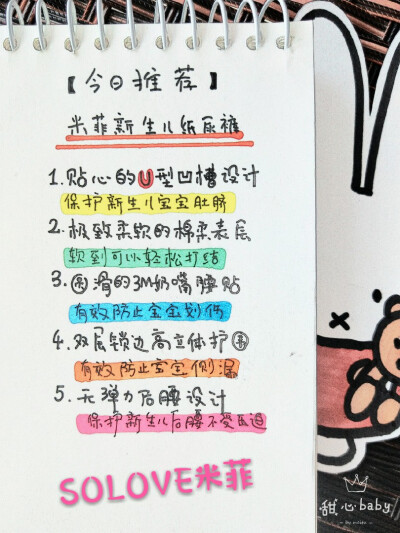 【今日推荐】
米菲新生儿纸尿裤
1.贴心的U型凹槽设计
保护新生儿宝宝肚脐
2.极致柔软的棉柔表层
软到可以轻松打结
3.圆滑的3M奶嘴腰贴
有效防止宝宝划伤
4.双层锁边高立体护围
有效防止宝宝侧漏
5.无弹力后腰设计
保护新生儿后腰不受压迫
SOLOVE米菲
甜心baby